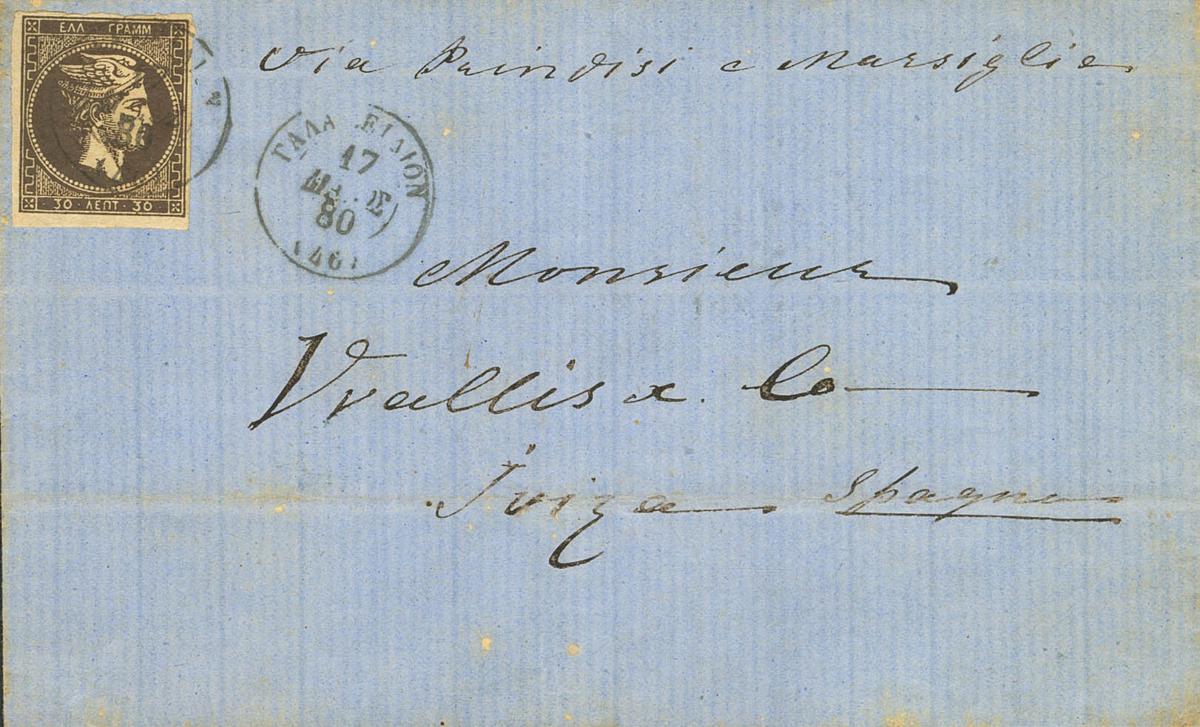 ΕΛΛ ΓΡΑΜΜ
30 ΛΕΠΤ 30
via Brindisi e Marsiglia
ΓΑΛΑ ΕΙΔΙΟΝ
17
80
(46)
Monsieur
Vvallis &. Co
Iviza Spagna